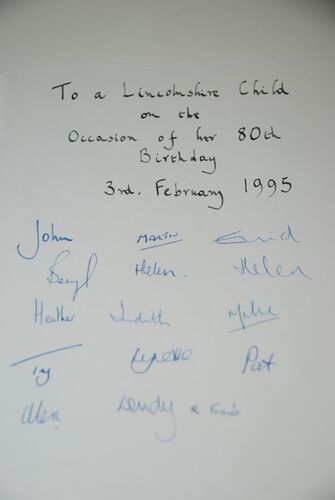 To a Lincolnshire Child
on the
Occasion of her 80th
Birthday
3rd. February 1995
John MARTIN Enid
Beryl Helen. Helen
Heather Judith Mike
Pat
Wendy & Frank